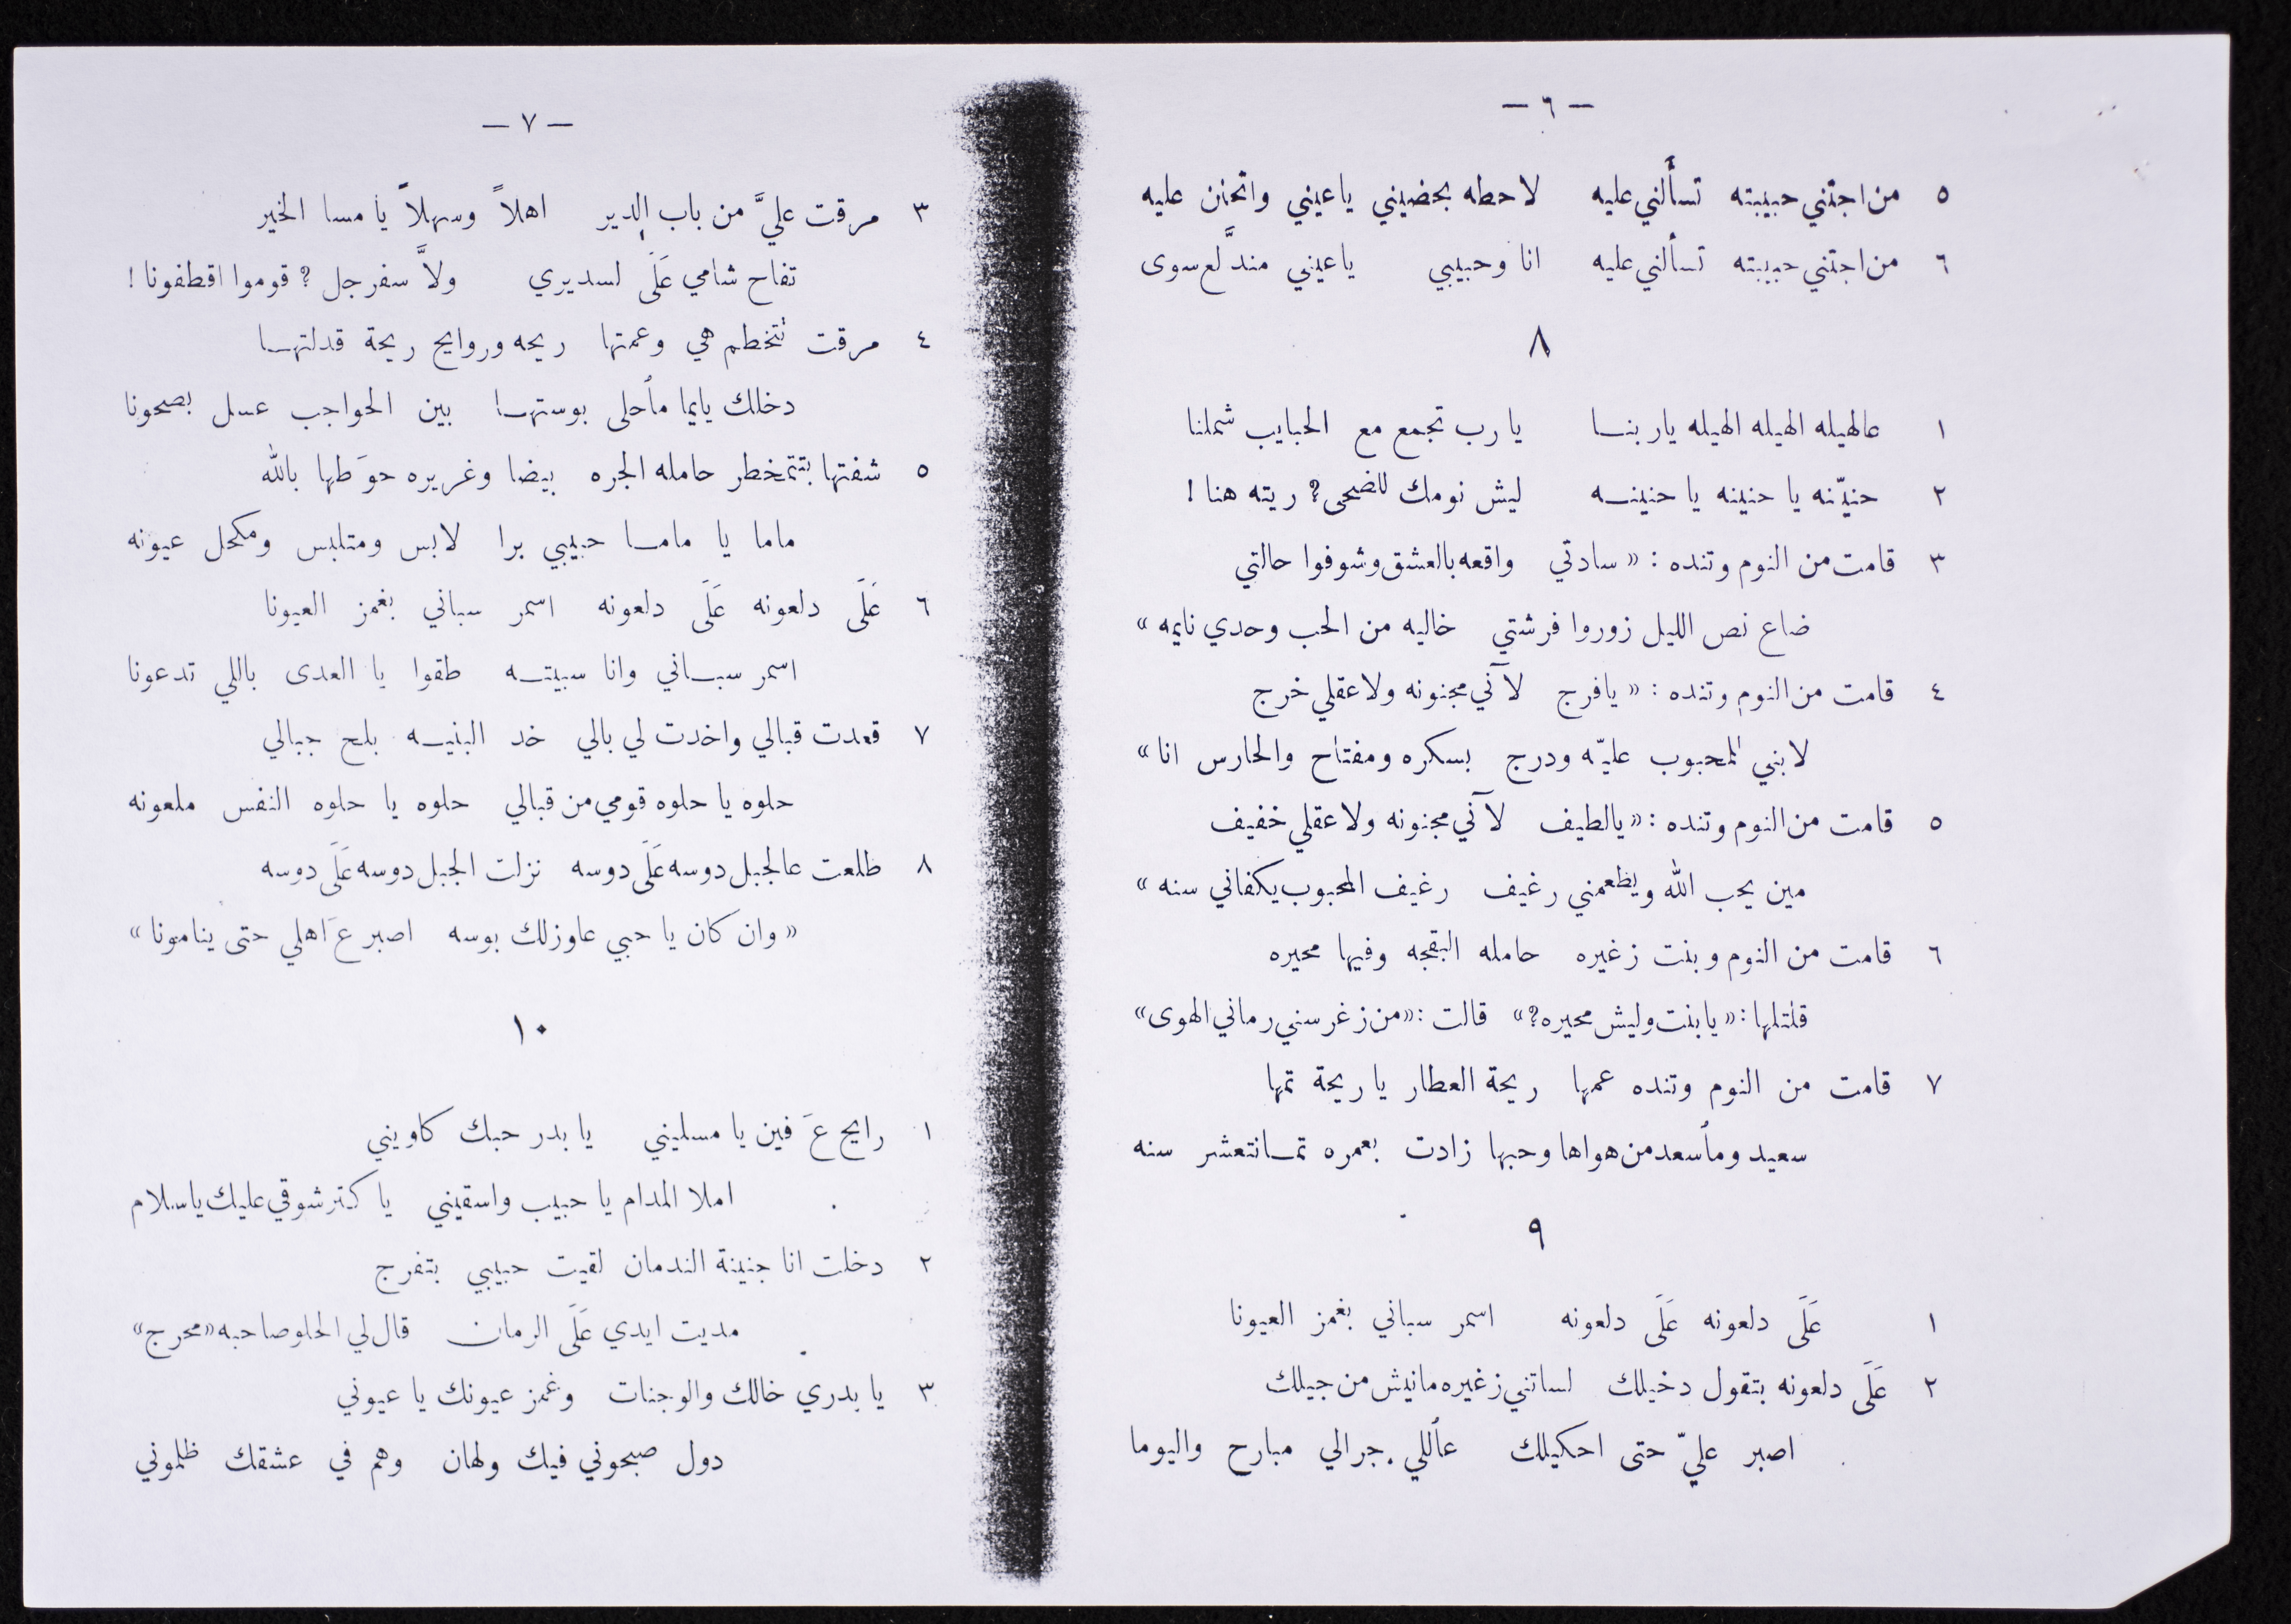 — ٦ —
٥ من اجتني حبيبته تسألني عليه لاحطه بحضيني ياعيني واتحنن عليه
٦ من اجتني حبيبته تسألني عليه انا وحبيبي ياعيني مندلَّع سوى
٨
١ عالهيله الهيله الهيله ياربنا يا رب تجمع مع الحبايب شملنا
٢ حنيّنه يا حنينه يا حنينه ليش نومك للضحى؟ ريته هنا !
٣ قامت من النوم وتنده : « سادتي واقعه بالعشق وشوفوا حالتي
ضاع نص الليل زوروا فرشتي خاليه من الحب وحدي نايمه »
٤ قامت من النوم وتنده : « يافرج لآني مجنونه ولا عقلي خرج
لابني المحبوب عليّه ودرج بسكره ومفتاح والحارس انا »
٥ قامت من النوم وتنده : « يالطيف لآني مجنونه ولا عقلي خفيف
مين يحب الله ويطعمني رغيف رغيف المحبوب يكفاني سنه »
٦ قامت من النوم وبنت زغيره حامله البقجه وفيها محيره
قلتلها : « يابنت وليش محيره؟ » قالت : « من زغر سني رماني الهوى »
٧ قامت من النوم وتنده عمها ريحة العطار يا ريحة تمها
سعيد ومأسعد من هواها وحبها زادت بعمره تمانتعشر سنه
٩
١ عَلَى دلعونه عَلَى دلعونه اسمر سباني بغمز العيونا
٢ عَلَى دلعونه بتقول دخيلك لساتني زغيره مانيش من جيلك
اصبر عليّ حتى احكيلك عأللي جرالي مبارح واليوما
— ٧ —
٣ مرقت عليَّ من باب الدير اهلاً وسهلاً يا مسا الخير
تفاح شامي عَلَى لسديري ولاَّ سفرجل ؟ قوموا اقطفونا !
٤ مرقت تتخطم هي وعمتها ريحه وروايح ريحة قدلتها
دخلك يايما مأحلى بوستها بين الحواجب عسل بصحونا
٥ شفتها بتتمخطر حامله الجره بيضا وغريره حوَطها بالله
ماما يا ماما حبيبي برا لابس ومتلبس ومكحل عيونه
٦ عَلَى دلعونه عَلَى دلعونه اسمر سباني بغمز العيونا
اسمر سباني وانا سبيته طقوا يا العدى باللي تدعونا
٧ قعدت قبالي واخدت لي بالي خد البنيه بلح جبالي
حلوه يا حلوه قومي من قبالي حلوه يا حلوه النفس ملعونه
٨ طلعت عالجبل دوسه عَلَى دوسه نزلت الجبل دوسه عَلَى دوسه
« وان كان يا حبي عاوزلك بوسه اصبر عَ اهلي حتى ينامونا »
١٠
١ رايح عَ فين يا مسليني يا بدر حبك كاويني
املا المدام يا حبيب واسقيني يا كتر شوقي عليك ياسلام
٢ دخلت انا جنينة الندمان لقيت حبيبي بتفرج
مديت ايدي عَلَى الرمان قال لي الحلو صاحبه « محرج »
٣ يا بدري خالك والوجنات وغمز عيونك يا عيوني
دول صبحوني فيك ولهان وهم في عشقك ظلموني